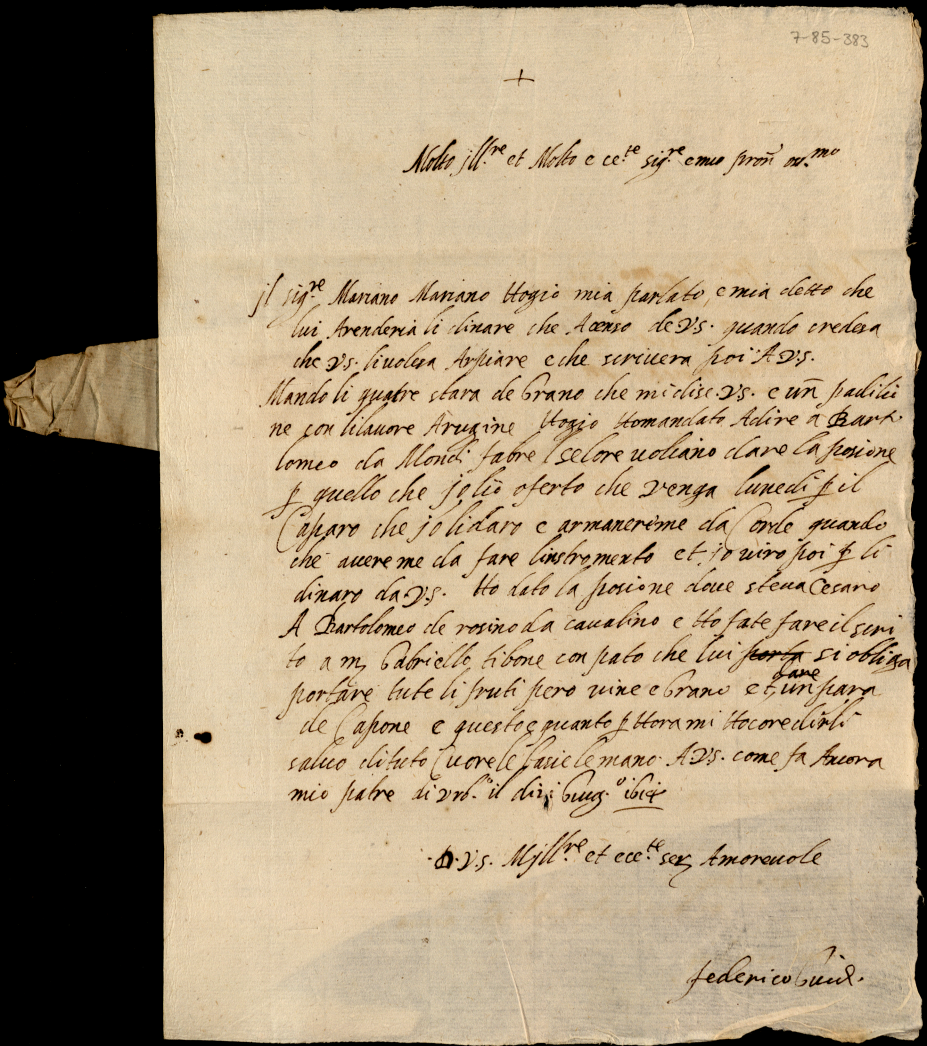 7-85-383
+
Molto jll.re et Molto e ce.te sig.re e mio pron̄ oss.mo
jl sig.re Mariano Mariano Hogio mia parlato e mia detto che
lui Arenderia li dinare che Acenso de V.S. quando credesa
che V.S. li volesa Arpiare e che scrivera poi A V.S.
Mando li quatre stara de Grano che mi dise V.S. e un̄ padili
ne con li lavore Arugine Hogio Homandato Adire a Barto
lomeo da Mondi fabre se lore voliano dare la posione
p quello che jo liò oferto che venga lunedi p il
Caparo che jo li daro e armanereme da Corde quando
che avereme da fare linstromento et jo viro poi p li
dinaro da V.S. Ho dato la posione dove steva Cesaro
A Bartolomeo de rosino da cavalino e Ho fate fare il scri
to a m. Gabriello tibone con pato che lui porta si obliga
portare tute li fruti pero vine e Grano et dare un para
de Capone e questo e quanto p Hora mi Hocore dirli
salvo di tuto Cuore le basie le mano A V.S. come fa Ancora
mio patre di Urb.o il di Giug.o
D. V.S. M jll.re et ece.te ser Amorevole
federico Guid.